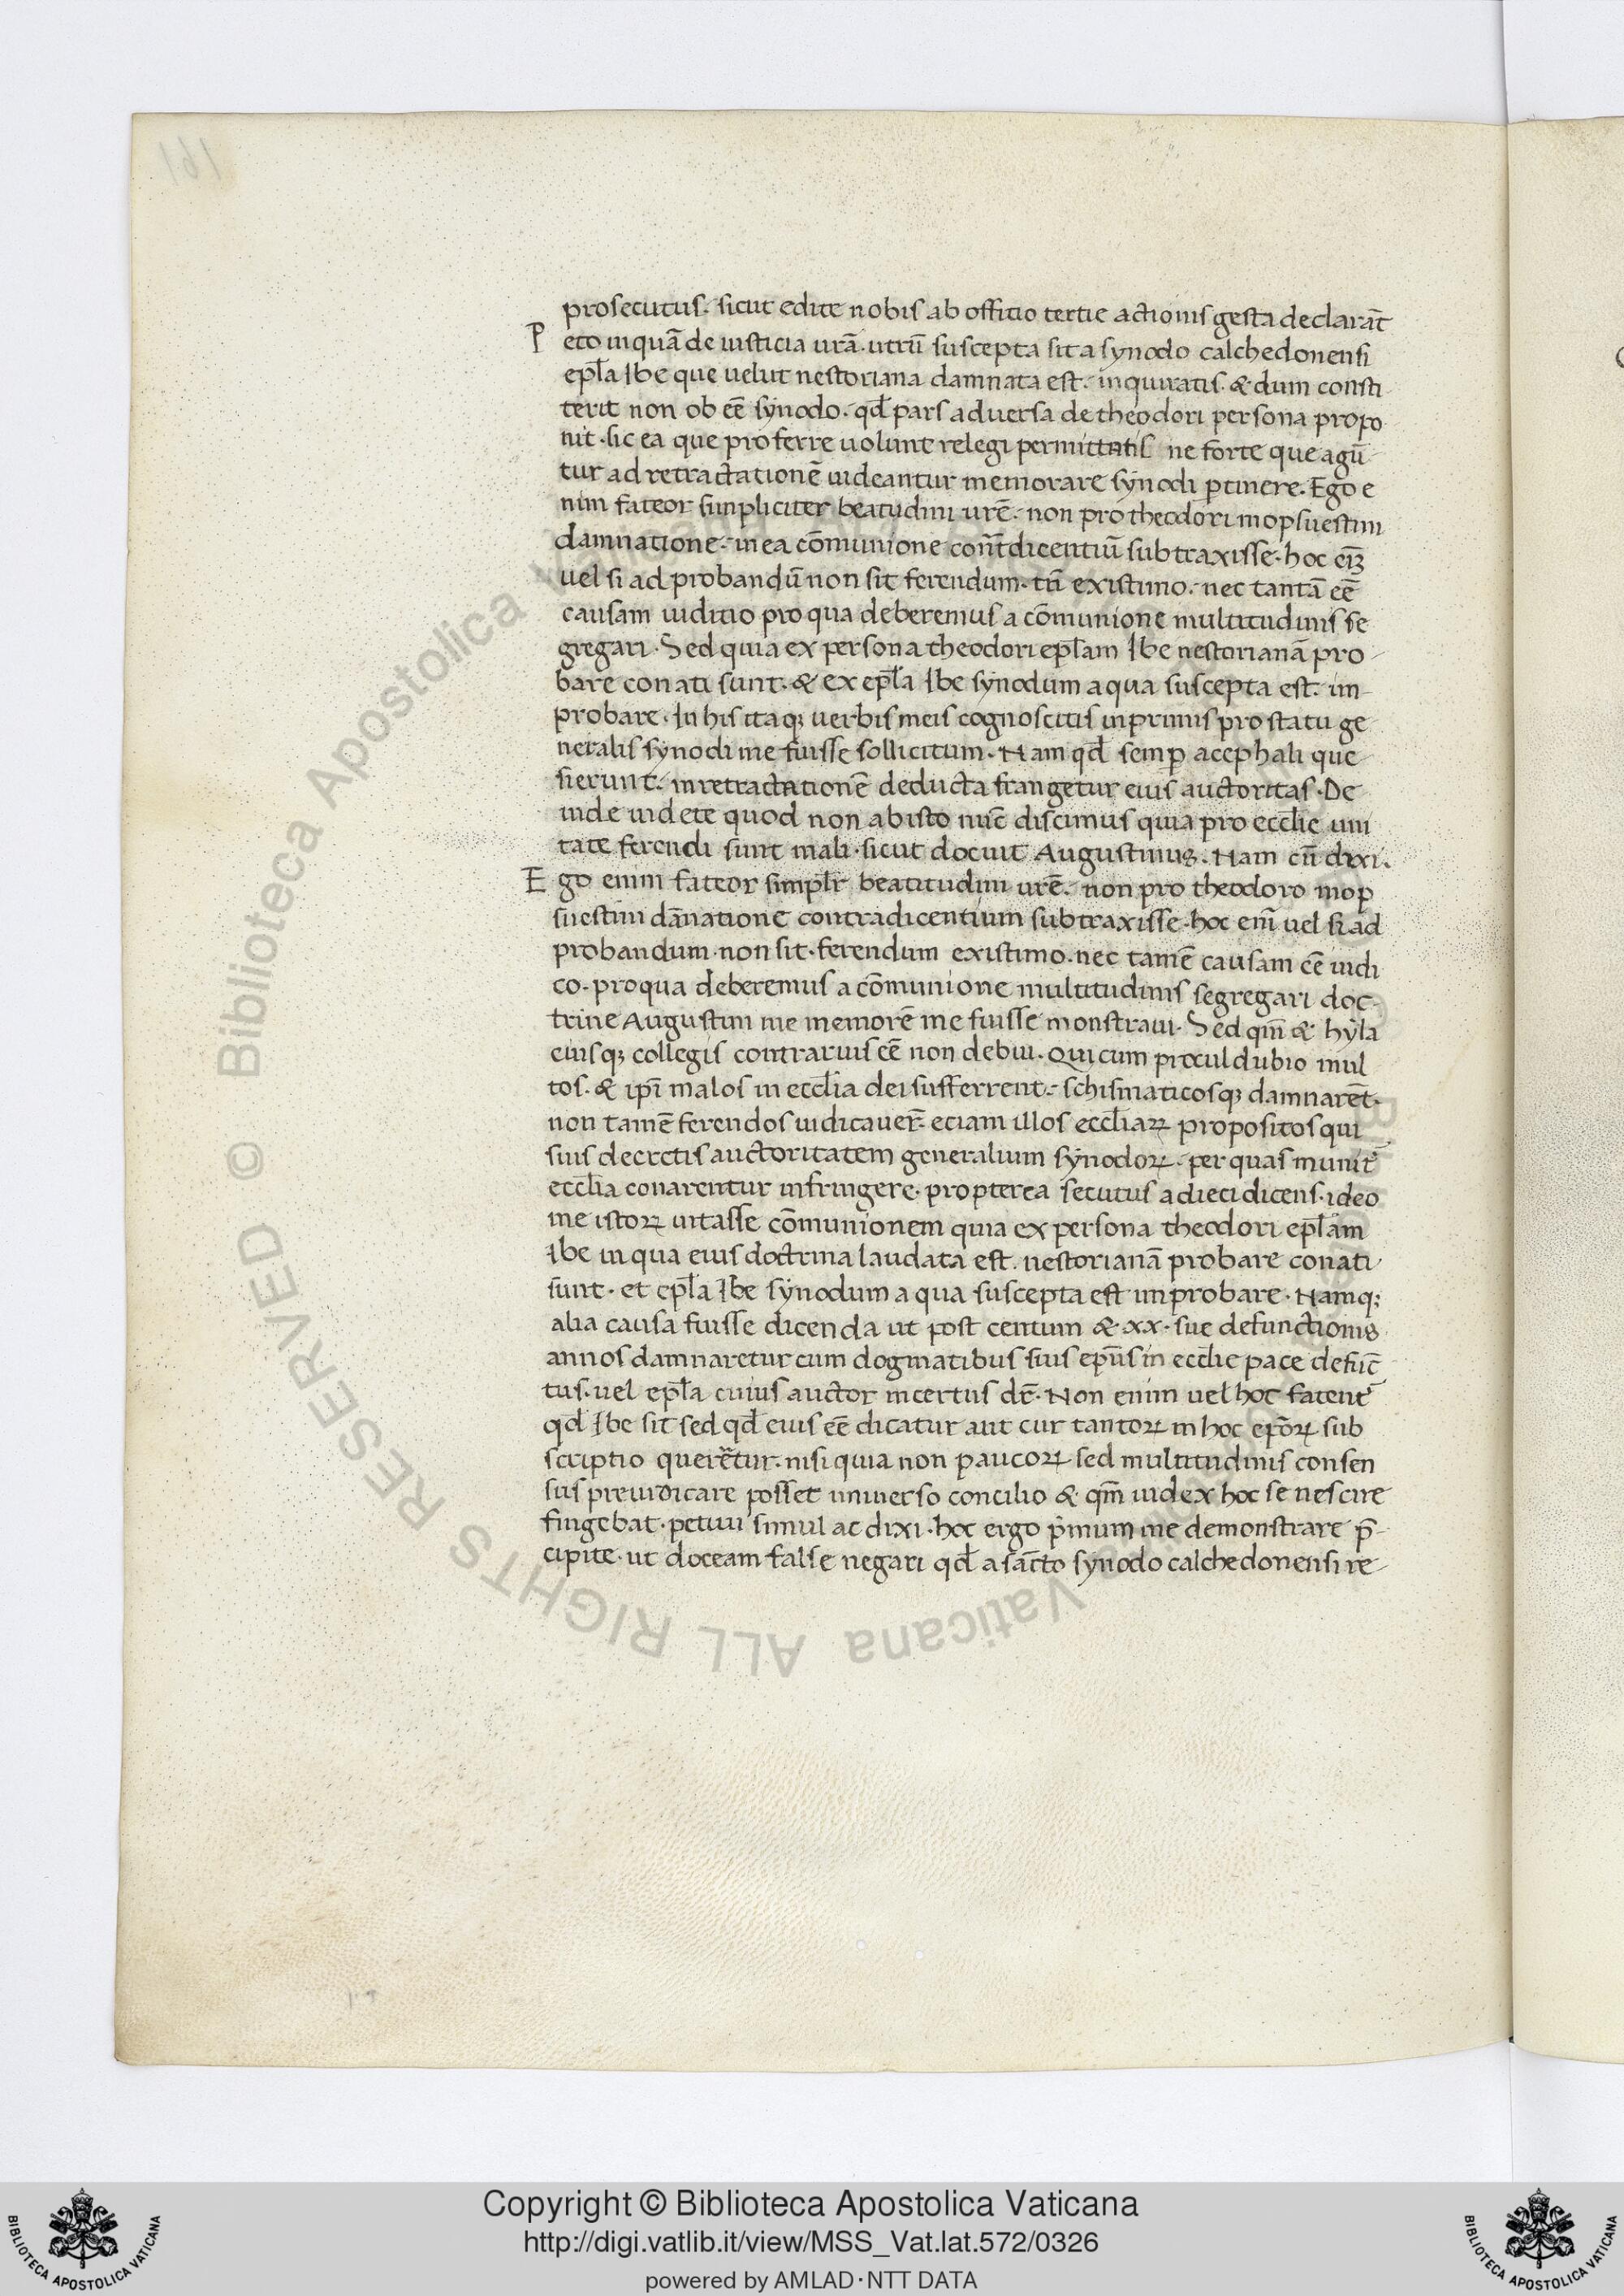 prosecutus. sicut edite nobis ab offitio tertie actionis gesta declarāt
Peto inquā de iusticia ur̄a. utrū suscepta sit a synodo calchedonensi
ep̄la Ibe que uelut nestoriana damnata est. inquiratis. & dum consti
terit non ob eē synodo. qd̄ pars aduersa de theodori persona propo
nit. sic ea que proferre uolunt relegi permittatis ne forte que agū
tur ad retractationē uideantur memorare synodi ꝑtinere. Ego e
nim fateor simpliciter beatudini ur̄e. non pro theodori mopsuestini
damnatione. in ea cōmunione cont̄dicentiū subtraxisse. hoc
uel si ad probandū non sit ferendum. tn̄ existimo. nec tantā eē
causam iuditio pro qua deberemus a cōmunione multitudinis se
gregari. Sed quia ex persona theodori ep̄lam Ibe nestorianā pro-
bare conati sunt. & ex ep̄la Ibe synodum a qua suscepta est. im-
probare. In his itaqꝫ uerbis meis cognoscitis inprimis pro statu ge
neralis synodi me fuisse sollicitum. Nam qd̄ semꝑ acephali que
sierunt. in retractationē deducta frangetur eius auctoritas. De
inde uidete quod non ab isto nūc discimus quia pro eccl̄ie uni
tate ferendi sunt mali. sicut docuit Augustinus. Nam cū dixi.
Ego enim fateor simpl̄r beatitudini ur̄e. non pro theodoro mop
suestini dānatione contradicentium subtraxisse. hoc eni̅ uel si ad
probandum. non sit. ferendum existimo. nec tamē causam eē iudi
co. pro qua deberemus a cōmunione multitudinis segregari doc-
trine Augustini me memorē me fuisse monstraui. Sed qm̄ & hyla
eiusqꝫ collegis contrarius eē non debui. Qui cum procul dubio mul
tos. & ip̄i malos in eccl̄ia dei sufferrent. schismaticosqꝫ damnarēt.
non tamē ferendos iudicauer̄. eciam illos eccl̄iaꝝ propositos qui
suis decretis auctoritatem generalium synodoꝝ. per quas munit᷑
eccl̄ia conarentur infringere. propterea secutus adieci dicens. ideo
me istoꝝ uitasse cōmunionem quia ex persona theodori ep̄lam
Ibe in qua eius doctrina laudata est. nestorianā probare conati
sunt. et ep̄la Ibe synodum a qua suscepta est improbare. Namqꝫ
alia causa fuisse dicenda ut post centum &. xx. sue defunctionis
annos damnaretur cum dogmatibus suis ep̄us in eccl̄ie pace defūc
tus. uel ep̄la cuius auctor incertus dr̄. Non enim uel hoc fatent᷑
qd̄ Ibe sit sed qd̄ eius eē dicatur aut cur tantoꝝ in hoc ep̄oꝝ sub
scriptio querētur. nisi quia non paucoꝝ sed multitudinis consen
sus preiudicare posset uniuerso concilio & qm̄ iudex hoc se nescire
fingebat. petiui simul ac dixi. hoc ergo p̄mum me demonstrare p̄-
cipite. ut doceam false negari qd̄ a san̄cto synodo calchedonensi re-
161
© Biblioteca Apostolica Vaticana ALL RIGHTS RESERVED
Copyright © Biblioteca Apostolica Vaticana
http://digi.vatlib.it/view/MSS_Vat.lat.572/0326
powered by AMLAD·NTT DATA
BIBLIOTECA APOSTOLICA VATICANA
BIBLIOTECA APOSTOLICA VATICANA